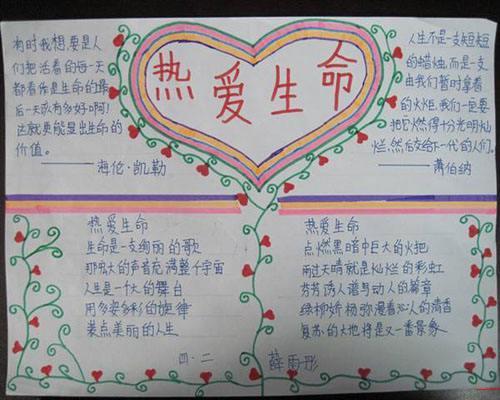 热爱生命
有时我想,要是人
们把活着的每一天
都看作是生命的最
后一天该有多好啊!
这就更能显出生命的
价值。
——海伦·凯勒
人生不是一支短短
的蜡烛,而是一支
由我们暂时拿着
的火炬,我们一定要
把它燃得十分光明灿
烂,然后交给下一代的人们。
——萧伯纳
热爱生命
生命是一支绚丽的歌
那宏大的声音充满整个宇宙
人生是一个大的舞台
用多姿多彩的旋律
装点美丽的人生
四·二
热爱生命
点燃黑暗中巨大的火把
雨过天晴就是灿烂的彩虹
芬芳诱人谱写动人的篇章
绿柳娇杨弥漫着沁人的清香
复苏的大地将是又一番景象
薛雨彤